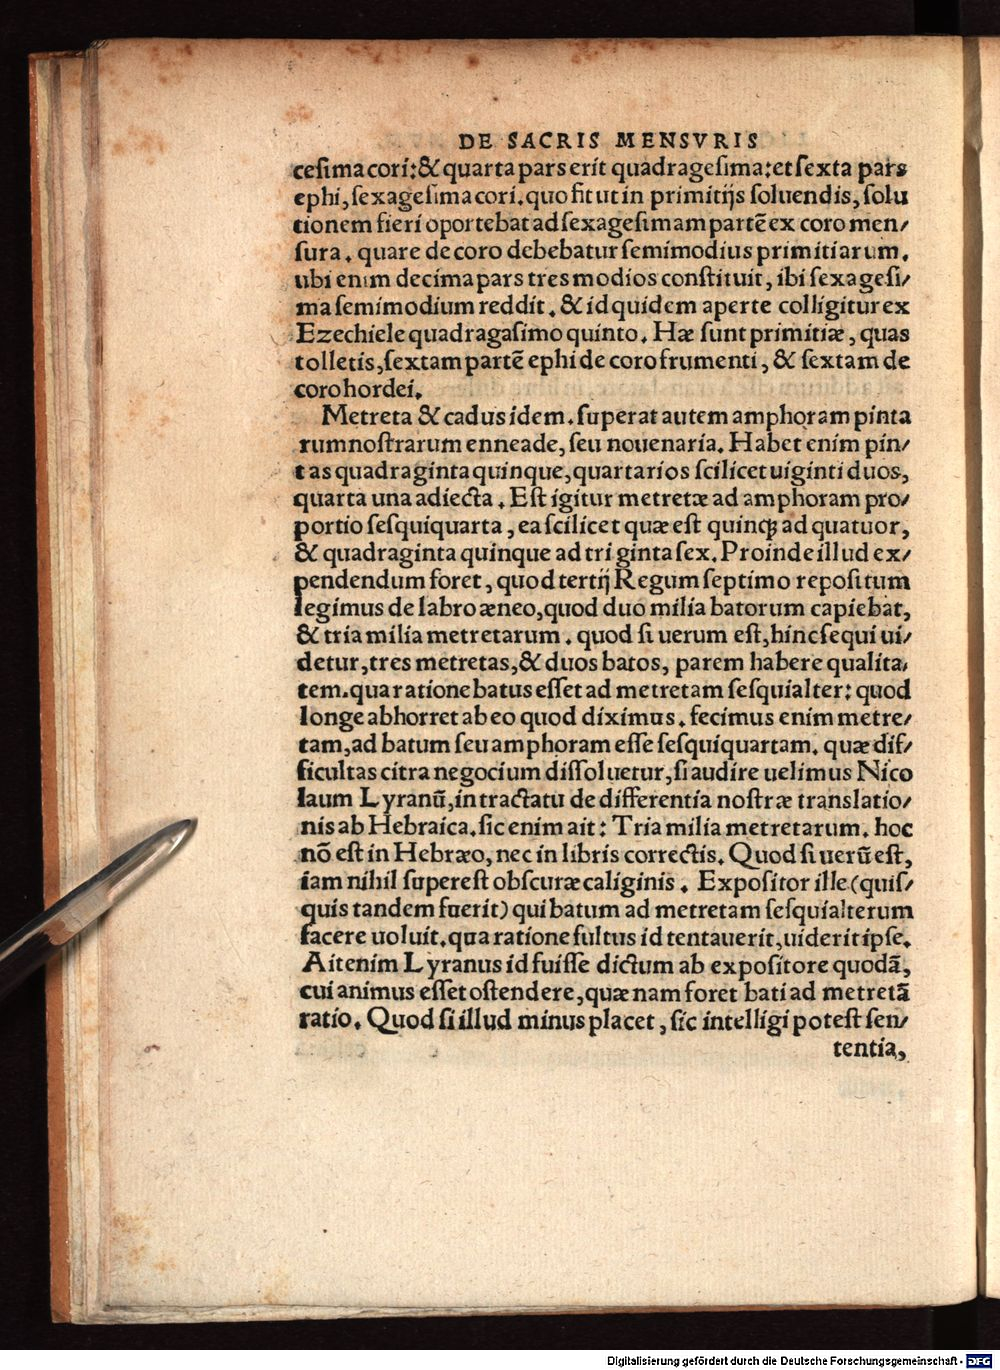 DE SACRIS MENSVRIS
cesima cori: & quarta pars erit quadragesima: et sexta pars
ephi, sexagesima cori. quo fit ut in primitijs soluendis, solu
tionem fieri oportebat ad sexagesimam partē ex coro men/
sura. quare de coro debebatur semimodius primitiarum.
ubi enim decima pars tres modios constituit, ibi sexagesi/
ma semimodium reddit. & id quidem aperte colligitur ex
Ezechiele quadragasimo quinto. Hæ sunt primitiæ, quas
tolletis, sextam partē ephi de coro frumenti, & sextam de
coro hordei.
Metreta & cadus idem. superat autem amphoram pinta
rum nostrarum enneade, seu nouenaria. Habet enim pin/
tas quadraginta quinque, quartarios scilicet uiginti duos,
quarta una adiecta. Est igitur metretæ ad amphoram pro/
portio sesquiquarta, ea scilicet quæ est quinqꝫ ad quatuor,
& quadraginta quinque ad triginta sex. Proinde illud ex/
pendendum foret, quod tertij Regum septimo repositum
legimus de labro æneo, quod duo milia batorum capiebat,
& tria milia metretarum. quod si uerum est, hinc sequi ui/
detur, tres metretas, & duos batos, parem habere qualita/
tem. qua ratione batus esset ad metretam sesquialter: quod
longe abhorret ab eo quod diximus. fecimus enim metre/
tam, ad batum seu amphoram esse sesquiquartam. quæ dif/
ficultas citra negocium dissoluetur, si audire uelimus Nico
laum Lyranū, in tractatu de differentia nostræ translatio/
nis ab Hebraica. sic enim ait: Tria milia metretarum. hoc
nō est in Hebræo, nec in libris correctis. Quod si uerū est,
iam nihil superest obscuræ caliginis. Expositor ille (quis/
quis tandem fuerit) qui batum ad metretam sesquialterum
facere uoluit. qua ratione fultus id tentauerit, uiderit ipse.
Ait enim Lyranus id fuisse dictum ab expositore quodā,
cui animus esset ostendere, quæ nam foret bati ad metretā
ratio. Quod si illud minus placet, sic intelligi potest sen/
tentia,
Digitalisierung gefördert durch die Deutsche Forschungsgemeinschaft - DFG